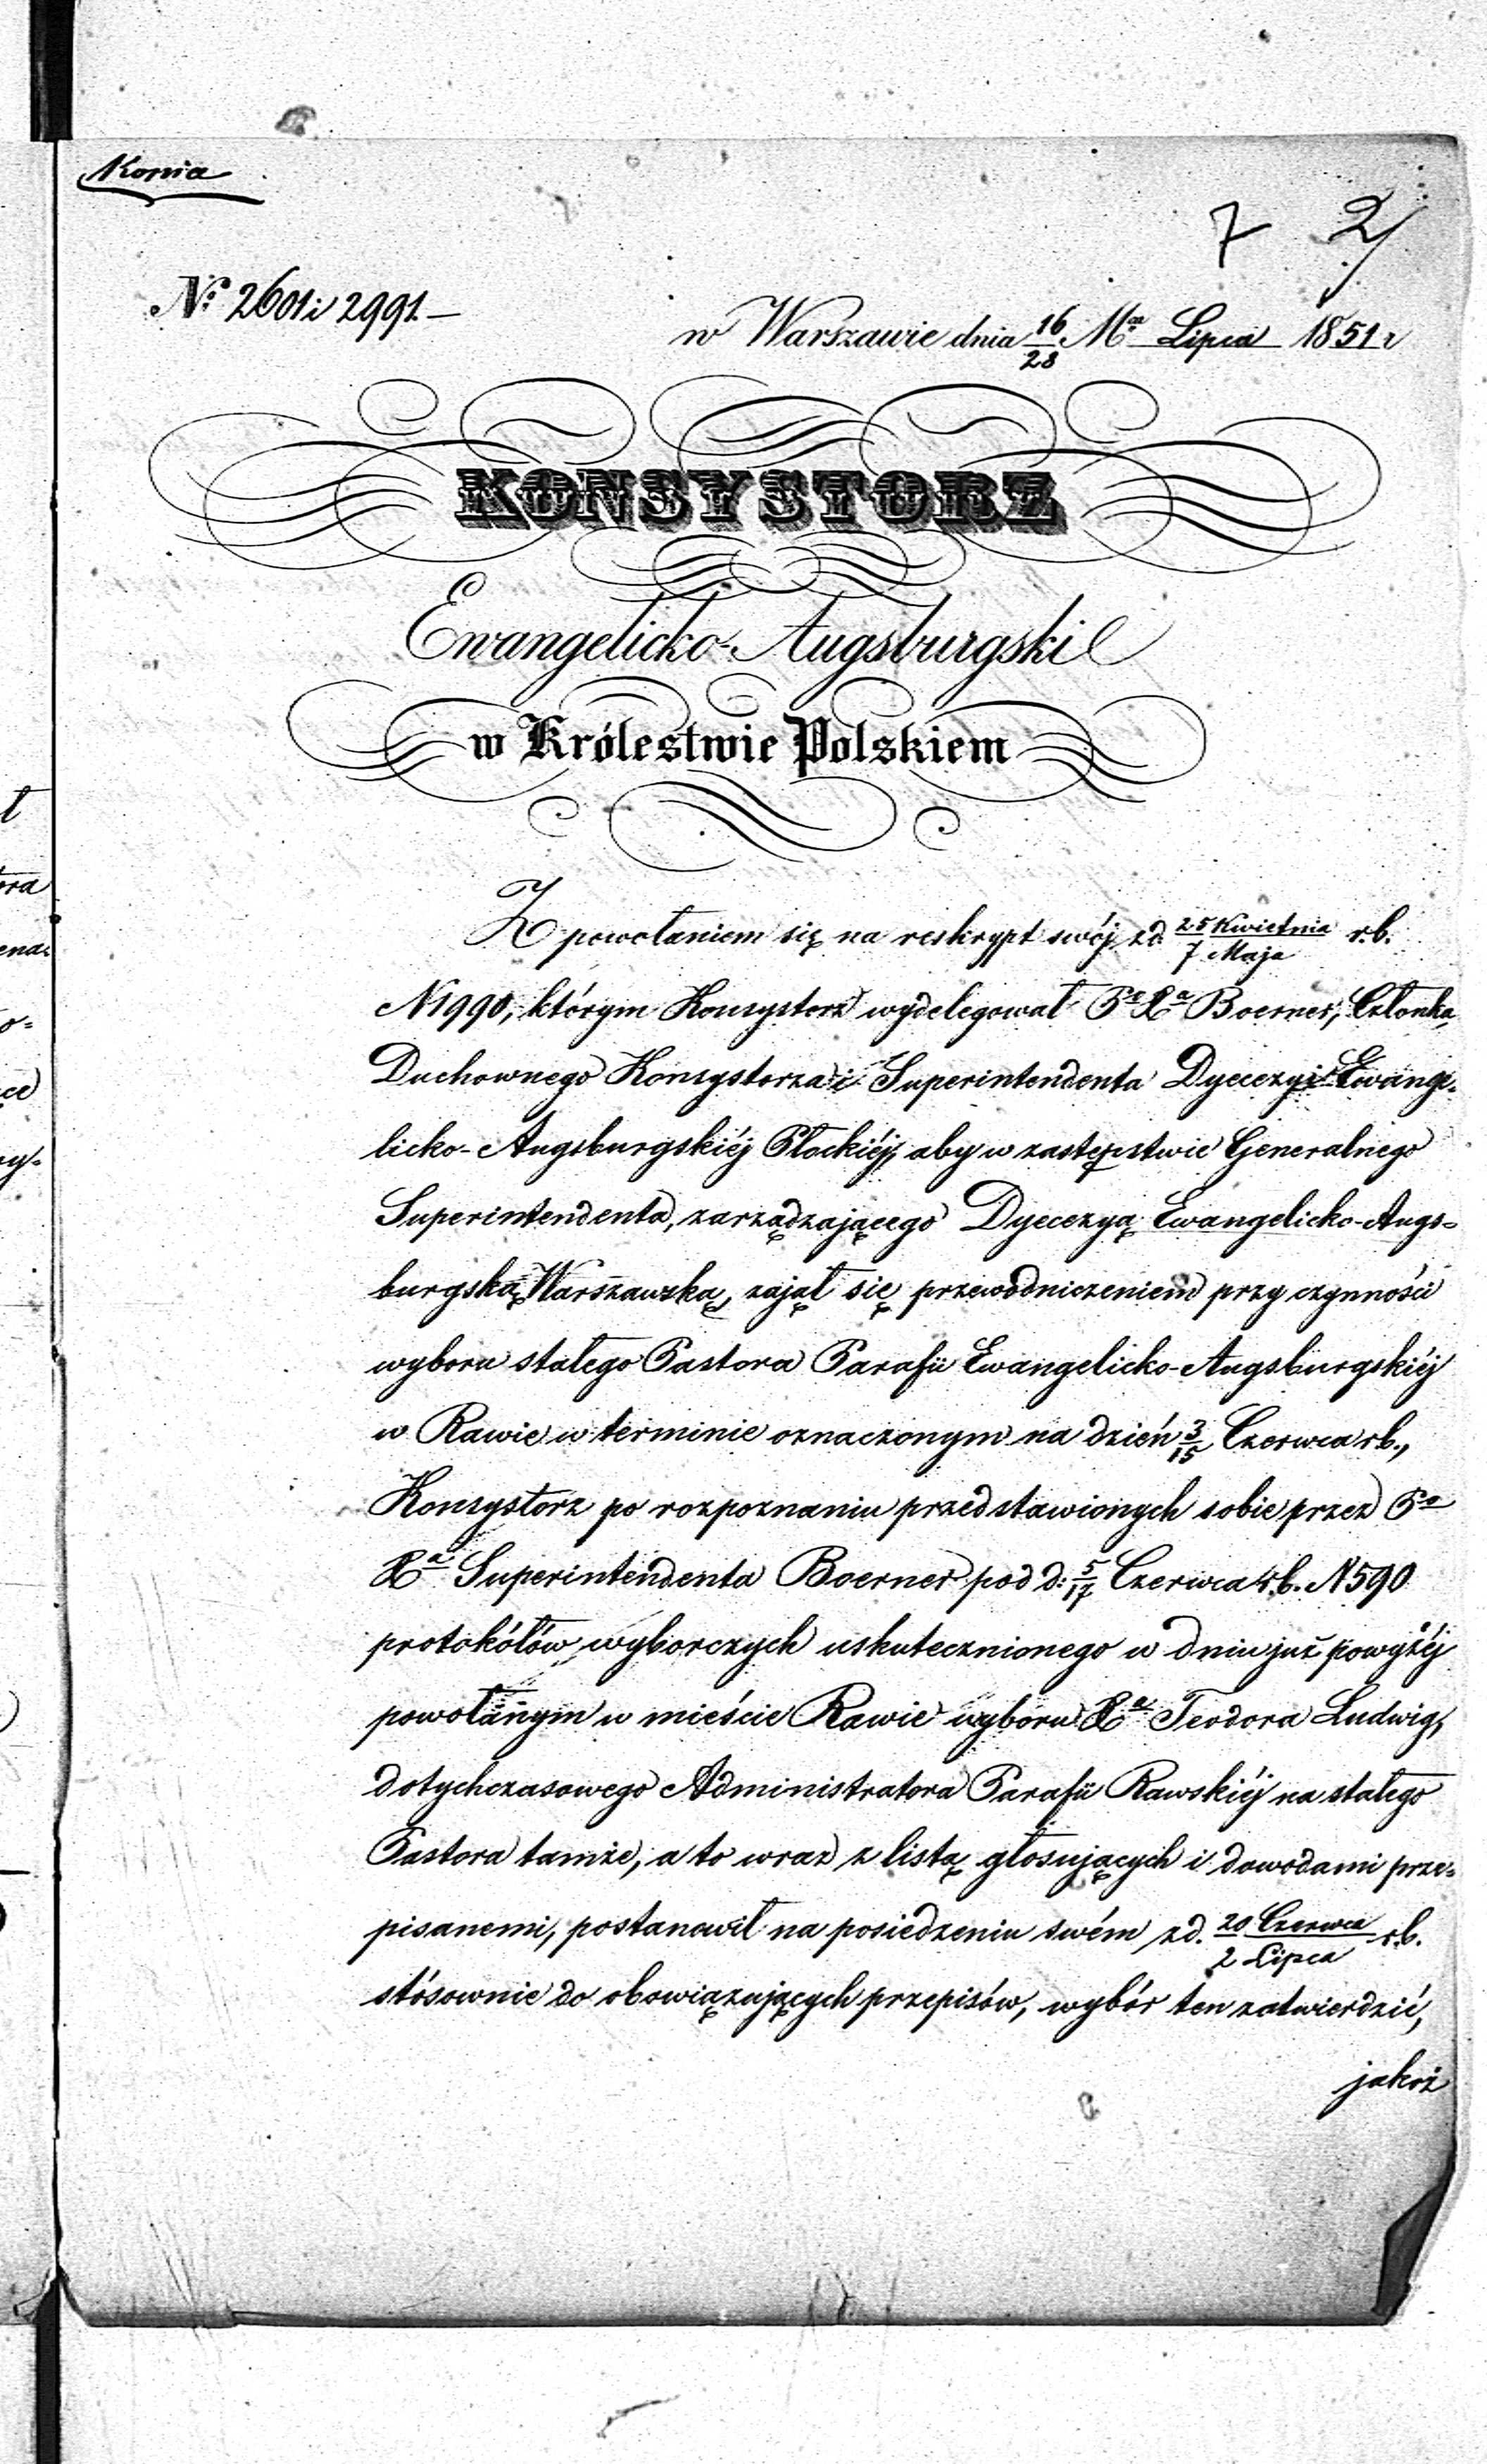 Kopia
7 2
Nº 2601 i 2991.—
w Warszawie dnia 16/28 Mca Lipca 1851 r
KONSYSTORZ
Ewangelicko-Augsburgski
w Królestwie Polskiem
Z powołaniem się na reskrypt swój z d. 25 Kwietnia/7 Maja r.b.
N1990, którym Konsystorz wydelegował Pa Xa Boerner, Członka
Duchownego Konsystorza i Superintendenta Dyecezyi Ewange-
licko-Augsburgskiéj Płockiéj, aby w zastępstwie Generalnego
Superintendenta, zarządzającego Dyecezyą Ewangelicko-Augs-
burgską Warszawską, zajął się przewodniczeniem przy czynności
wyboru stałego Pastora Parafii Ewangelicko-Augsburgskiéj
w Rawie w terminie oznaczonym na dzień 3/15 Czerwca r.b.,
Konsystorz po rozpoznaniu przedstawionych sobie przez Pa
Xa Superintendenta Boerner pod d: 5/17 Czerwca r.b. N590
protokółów wyborczych uskutecznionego w dniu już powyżéj
powołanym w mieście Rawie wyboru Xa Teodora Ludwig,
dotychczasowego Administratora Parafii Rawskiéj na stałego
Pastora tamże, a to wraz z listą głosujących i dowodami prze-
pisanemi, postanowił na posiedzeniu swém z d. 20 Czerwca/2 Lipca r.b.
stósownie do obowiązujących przepisów, wybór ten zatwierdzić,
jakoż